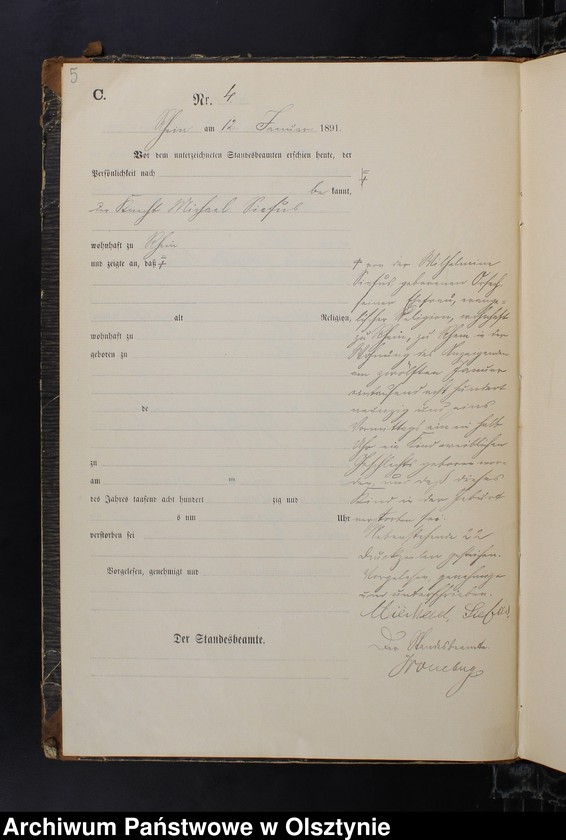 5
C.
Nr. 4
Rhein am 12 Januar 1891.
Vor dem unterzeichneten Standesbeamten erschien heute, der
Persönlichkeit nach
be kannt,
der Knecht Michael
wohnhaft zu Rhein
und zeigte an, daß
alt Religion,
wohnhaft zu
geboren zu
de
zu
am
des Jahres tausend acht hundert zig und
s um Uhr
verstorben sei
Vorgelesen, genehmigt und
Der Standesbeamte.
von der Wilhelmine
geborenen
seiner Ehefrau, evange-
lischer Religion, wohnhaft
zu Rhein, zu Rhein in der
Wohnung des Anzeigenden
am zwölften Januar
eintausend acht hundert
neunzig und eins
Vormittags ein ein halb
Uhr ein Kind weiblichen
Geschlechts geboren wor-
den und daß dieses
Kind in der Geburt
verstorben sei.
Nebenstehende 22
Druckzeilen gestrichen.
Vorgelesen, genehmigt
und unterschrieben.
Der Standesbeamte.